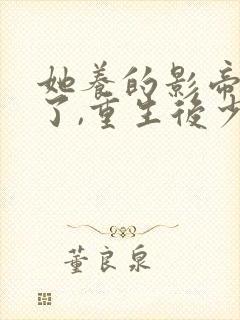 她养的影帝
了,重生後少
董良泉